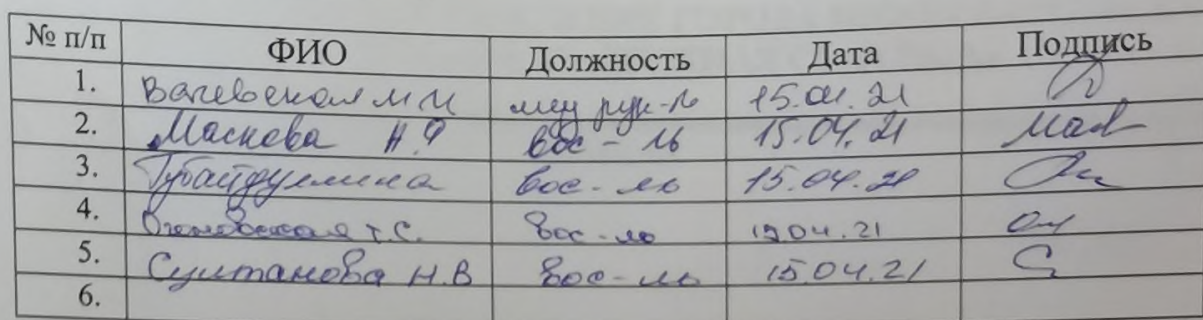 № п/п ФИО Должность Дата Подпись
1. муз рук-ль 15.04.21
2. Маскева Н.Ф вос-ль 15.04.21
3. Губайдуллина вос-ль 15.04.21
4. Т.С. вос-ль 04.21
5. Султанова Н.В вос-ль 15.04.21
6.